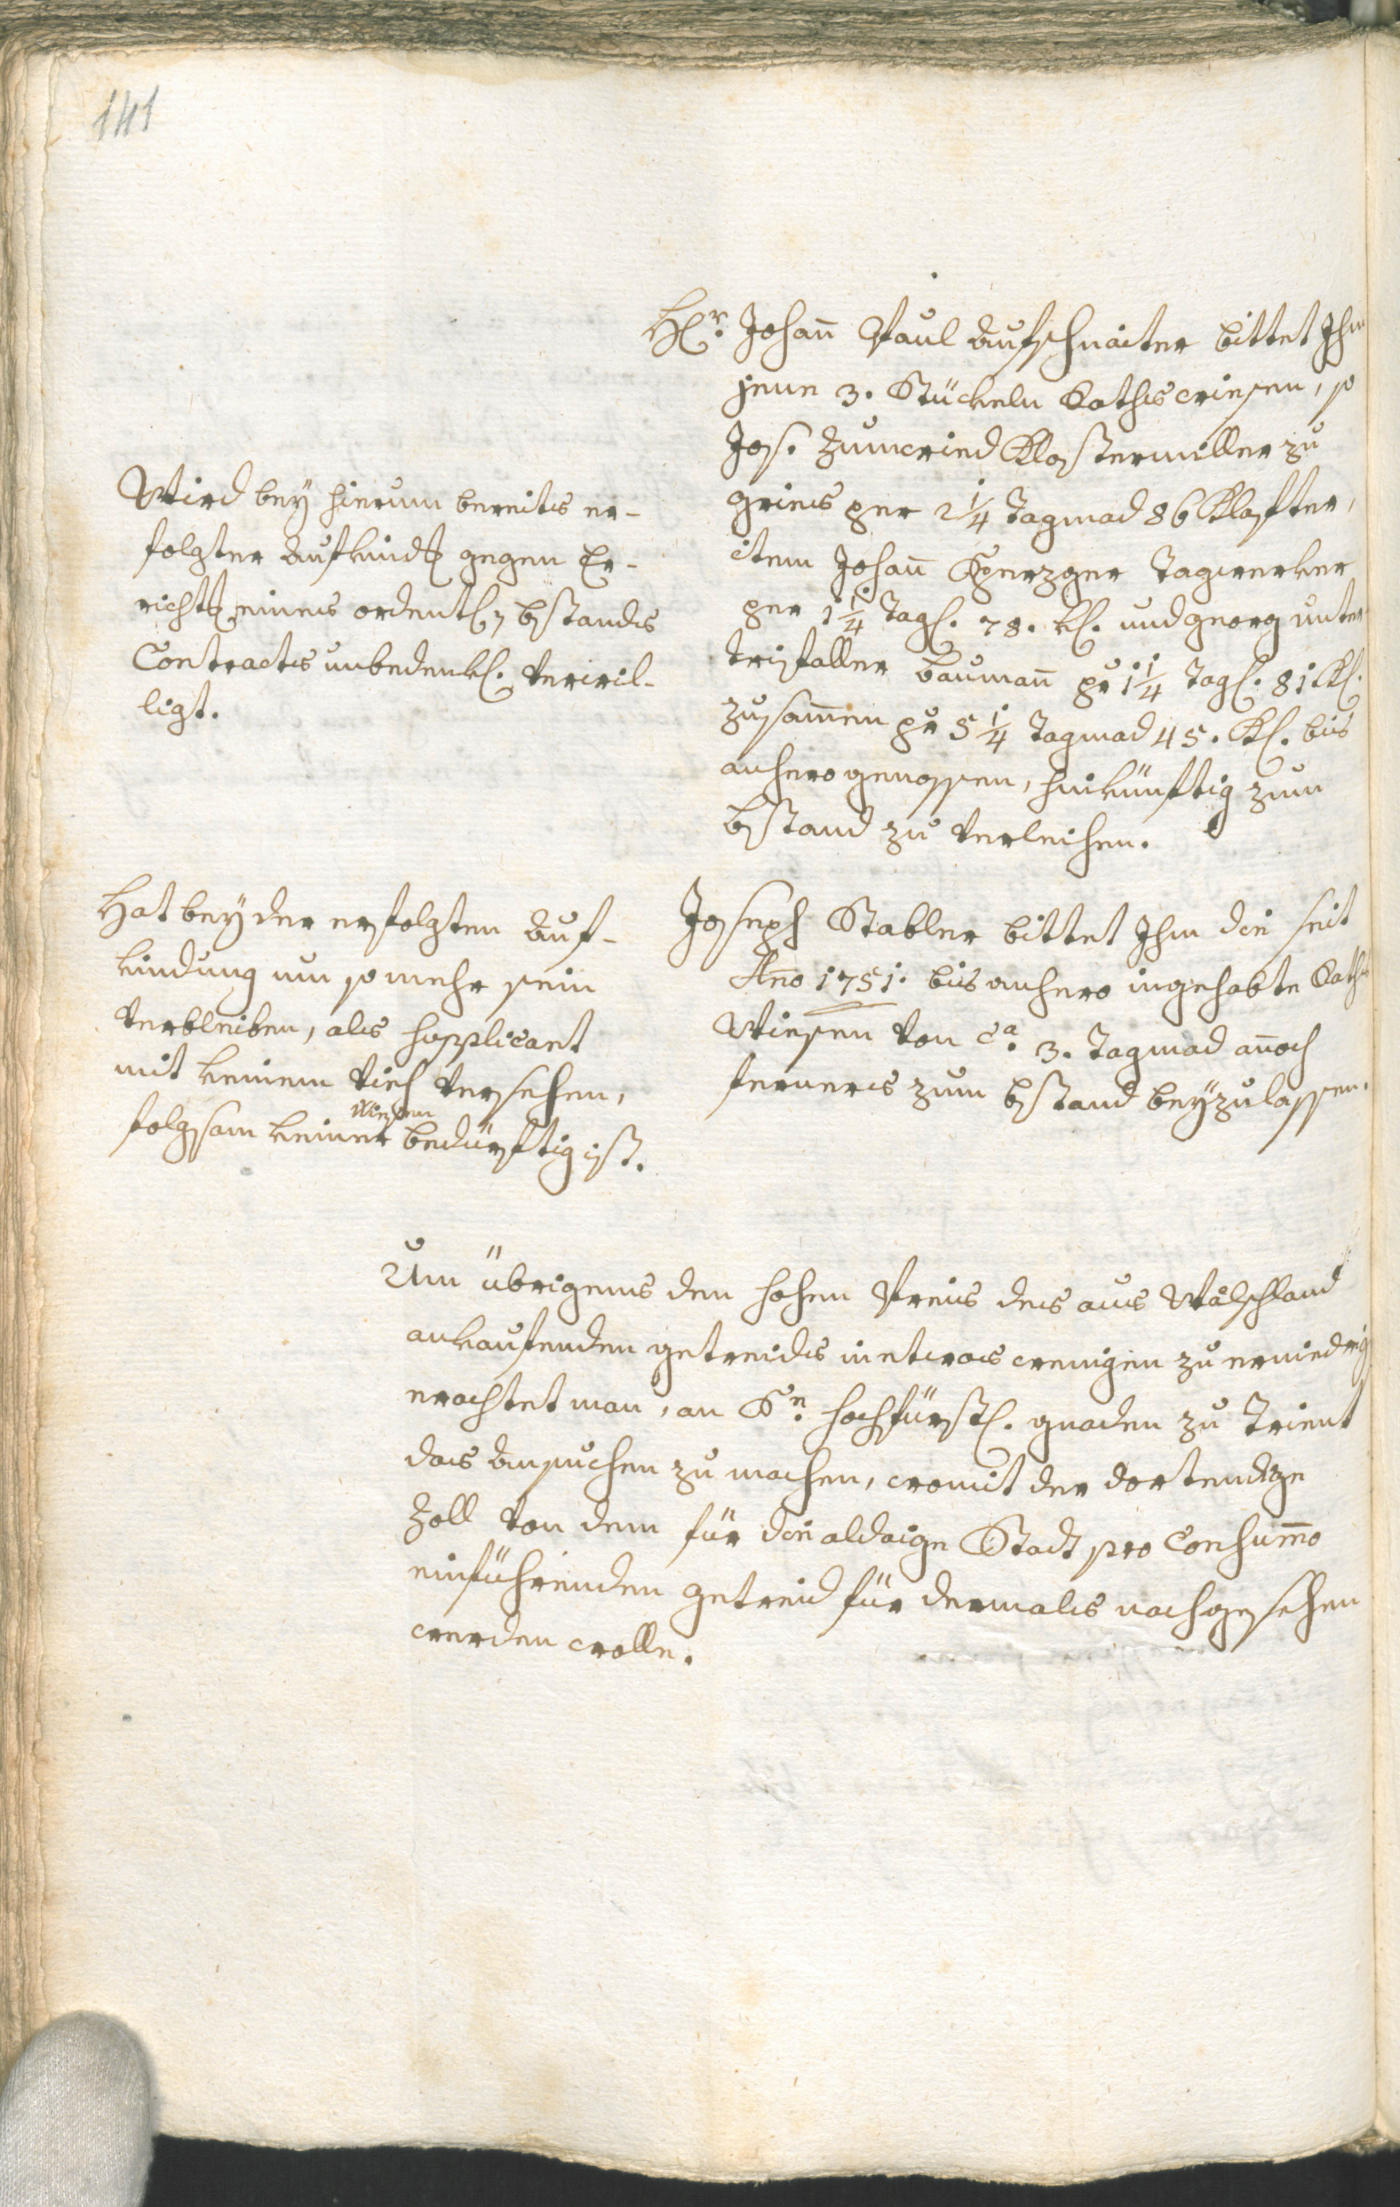 141
Hr. Johann Paul Aufschnaiter bittet Ihm
jene 3. Stückeln Rathswiesen, so
Jos. Zumwied Klostermiller zu
gries per 2 1/4 Tagmad 86 Klafter,
item Johann Sperzger Tagwerker
per 1 1/4 Tagl. 78. Kl. und georg unter
trifaller baumann pr 1 1/4 Tagl. 81 Kl.
zusammen pr 5 1/4 Tagmad 45. Kl. bis
anhero genossen, hinkünftig zum
bstand zu verleihen.
Wird bey hierum bereits er-
folgter Aufkindg gegen Er-
richtg eines ordentl. bstands
Contracts unbedenkl. verwil-
ligt.
Joseph Stabler bittet Ihm die seit
Ao 1751. bis anhero ingehabte Raths
Wiesen von ca. 3. Tagmad annoch
ferners zum bstand beyzulassen.
Hat bey der erfolgten Auf-
kindung um so mehr sein
verbleiben, als supplicant
mit keinem Vieh versehen,
folgsam keiner Wiesen bedürftig ist.
Um übrigens den hohen Preis des aus Wälschland
ankaufenden getreids in etwas wenigen zu erniedrig
erachtet man, an Sr. hochfürstl. gnaden zu Trient
das Ansuchen zu machen, womit der dortendige
Zoll von dem für die aldaige Stadt pro Consummo
einführenden getreid für dermals nachgesehen
werden wolle.